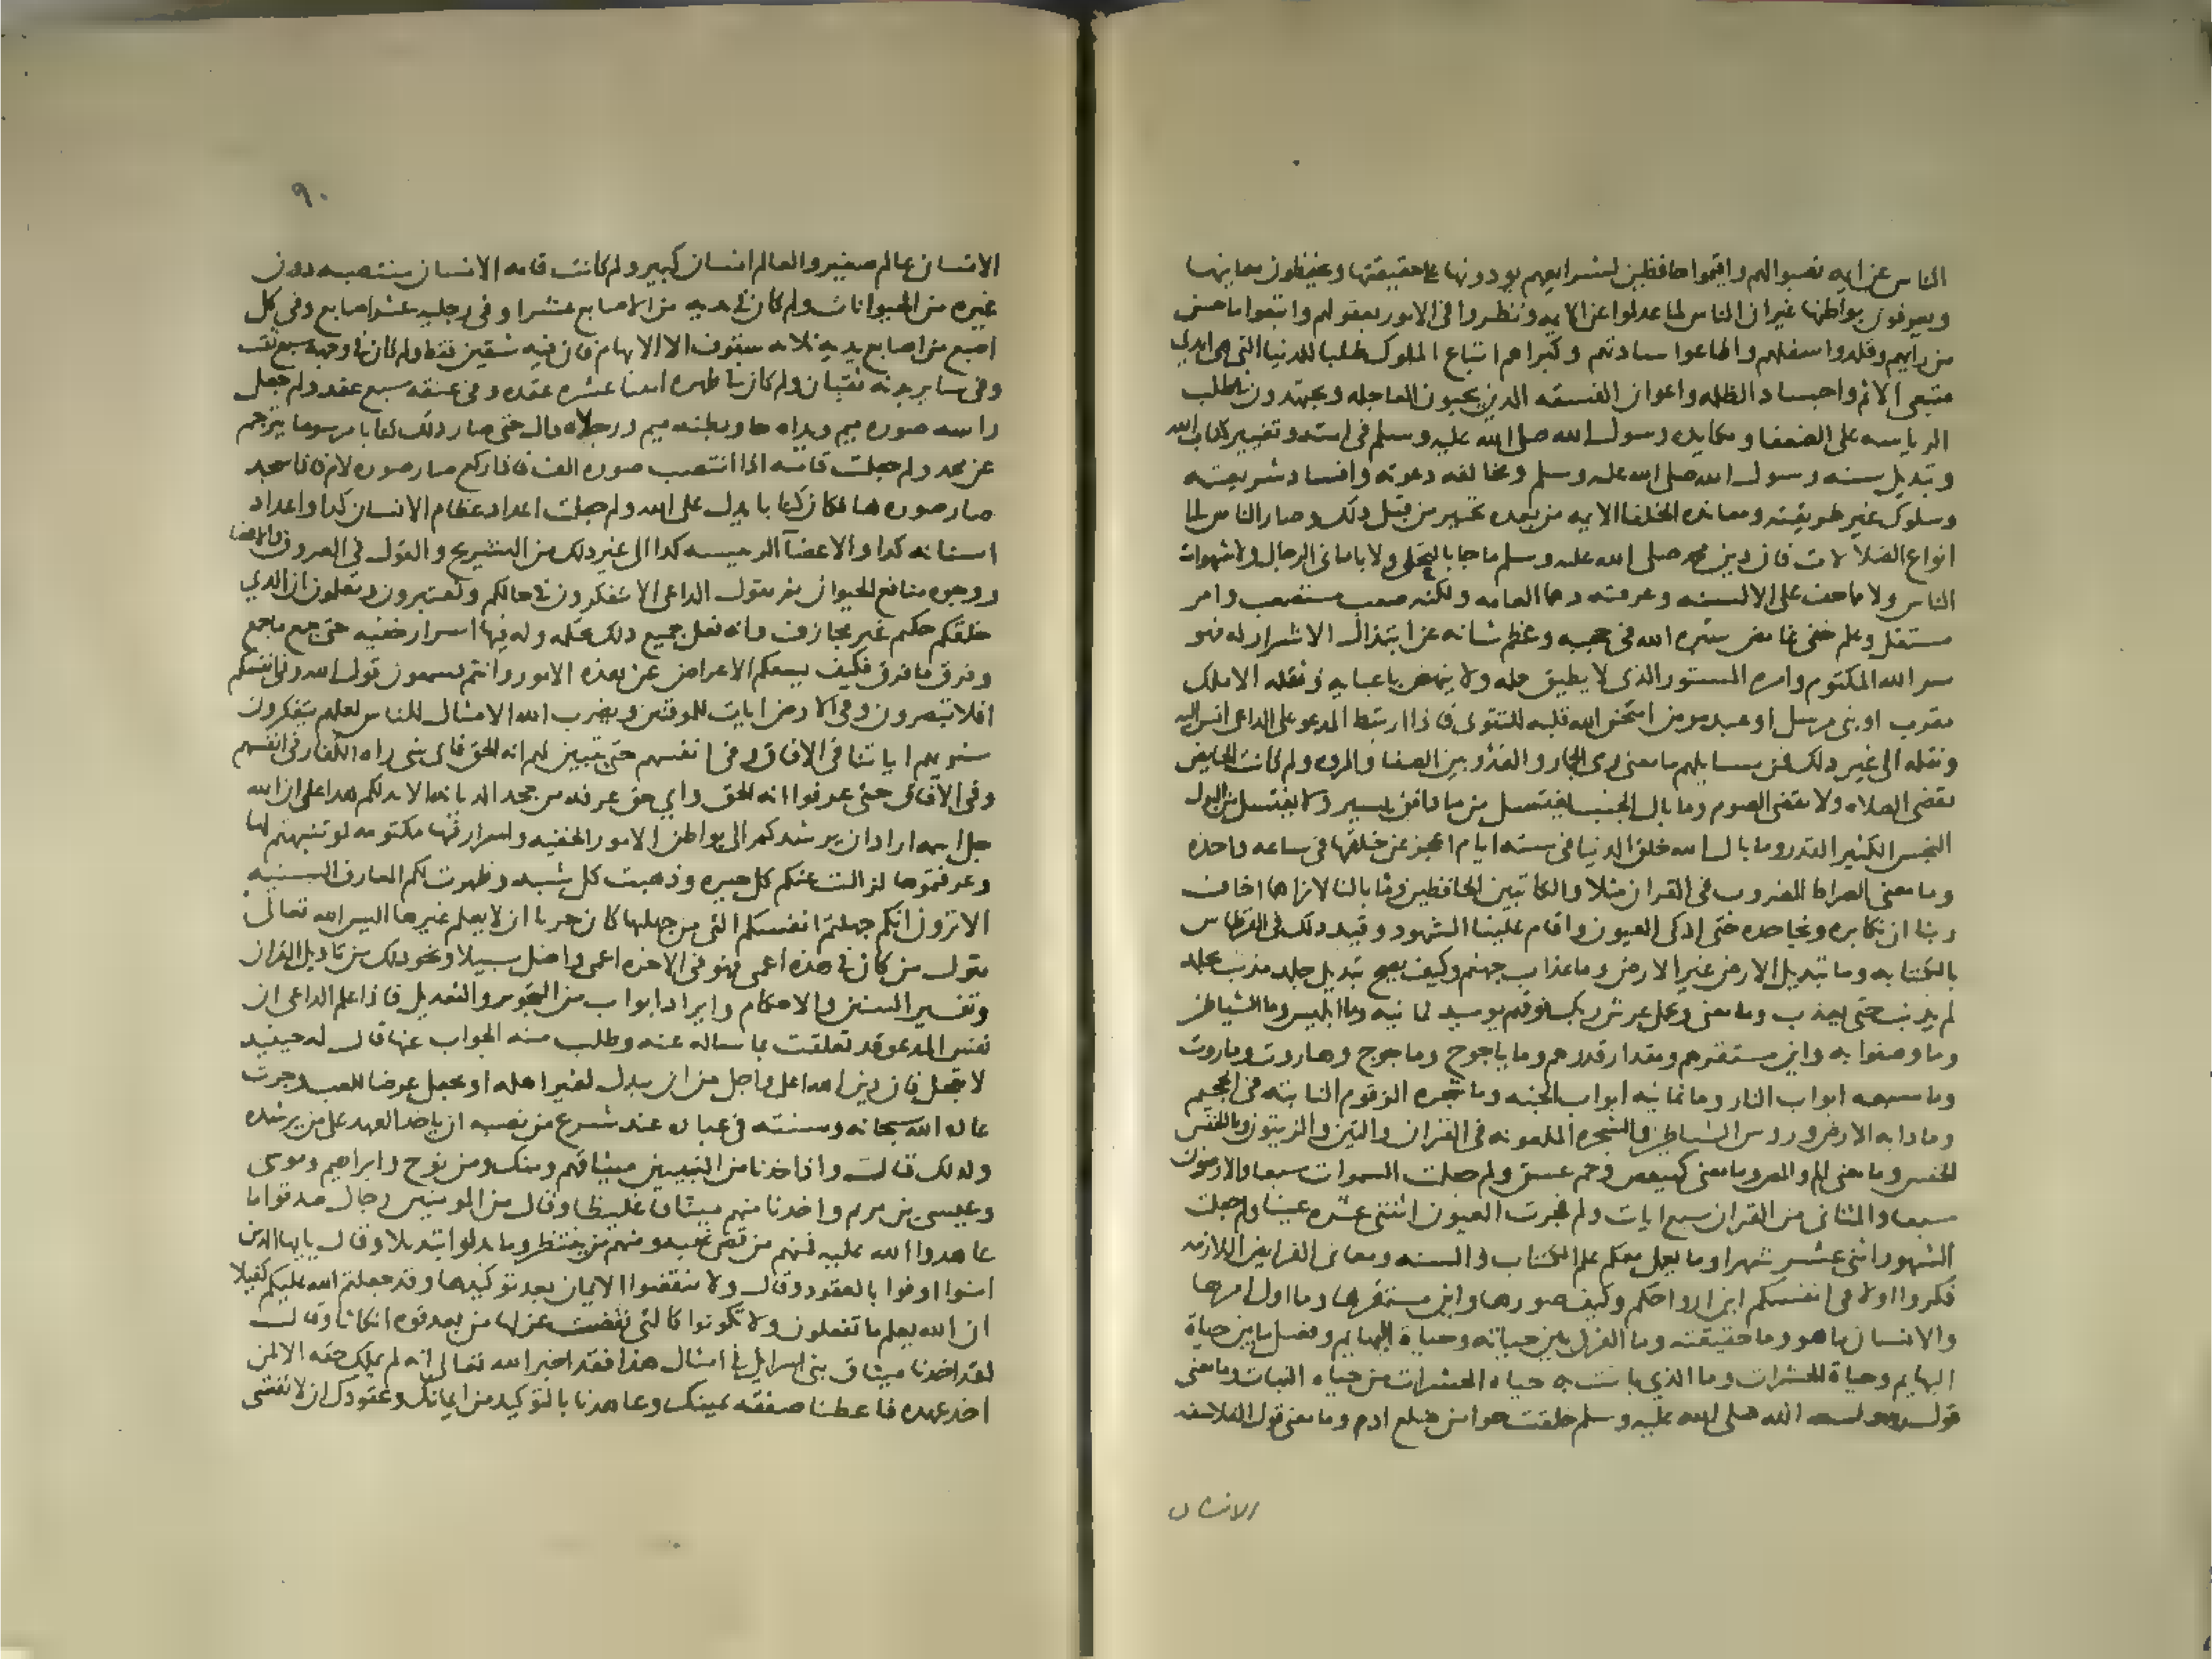 الناس عن ايمه نصبوا لهم واقيموا حافظين لشرايعهم يودونها على حقيقتها ويحفظون معانيها
ويعرفون بواطنها غير ان الناس لما عدلوا عن الايمه ونظروا في الامور بعقولهم واتبعوا ما حسن
من رايهم وقلدوا سفلتهم واطاعوا سادتهم وكبراهم اتباع الملوك طلبا للدنيا التي هي ايدي
متبعي الاثم واجناد الظلمه واعوان الفسقه الذين يحبون العاجله ويجتهدون في طلب
الرياسه على الضعفا ومكايده رسول الله صلى الله عليه وسلم في امته وتغيير كتاب الله
وتبديل سنه رسول الله صلى الله عليه وسلم ومخالفه دعوته وافساد شريعته
وسلوك غير طريقته ومعانده الخلفا الايمه من بعده تحير من قبل ذلك وصار الناس الى
انواع الضلالات فان دين محمد صلى الله عليه وسلم ما جا بالتحلي ولا باماني الرجال ولا شهوات
الناس ولا ما خف على الالسنه وعرفته دهما العامه ولكنه صعب مستصعب وامر
مستقل وعلم خفي غامض ستره الله في حجبه وعظم شانه عن ابتذال الاشرار له فهو
سر الله المكتوم وامره المستور الذي لا يطيق حمله ولا ينهض باعبايه وثقله الا ملك
مقرب او نبي مرسل او عبد مومن امتحن الله قلبه للتقوى فاذا ارتبط المدعو على الداعي انس له
ونقله الى غير ذلك فمن مسايلهم ما معنى رمي الجمار والعدو بين الصفا والمروه ولم كانت الحايض
تقضي الصلاه ولا تقضي الصوم وما بال الجنب يغتسل من ما دافق يسير ولا يغتسل من البول
النجس الكثير القدر وما بال الله خلق الدنيا في سته ايام اعجز عن خلقها في ساعه واحده
وما معنى الصراط المضروب في القران مثلا والكاتبين الحافظين وما بالنا لا نراهما اخاف
ربنا ان نكابره ونجاحده حتى اذكى العيون واقام علينا الشهود وقيد ذلك في القرطاس
بالكتابه وما تبديل الارض غير الارض وما عذاب جهنم وكيف يصح تبديل جلد مذنب بجلد
لم يذنب حتى يعذب وما معنى ويحمل عرش ربك فوقهم يوميذ ثمانيه وما ابليس وما الشياطين
وما وصفوا به واين مستقرهم ومقدار قدرهم وما ياجوج وماجوج وهاروت وماروت
وما سبعه ابواب النار وما ثمانيه ابواب الجنه وما شجره الزقوم النابته في الجحيم
وما دابه الارض وروس الشياطين والشجره الملعونه في القران والتين والزيتون وما الخنس
الكنس وما معنى الم والمص وما معنى كهيعص وحم عسق ولم جعلت السموات سبعا والارضون
سبعا والمثاني من القران سبع ايات ولم فجرت العيون اثنتي عشره عينا ولم جعلت
الشهور اثنى عشر شهرا وما يعمل معكم علم الكتاب والسنه ومعاني الفرايض اللازمه
فكروا اولا في انفسكم اين ارواحكم وكيف صورها واين مستقرها وما اول امرها
والانسان ما هو وما حقيقته وما الفرق بين حياته وحياة البهايم وفضل ما بين حياة
البهايم وحياة الحشرات وما الذي بانت به حياه الحشرات من حياه النبات وما معنى
قول رسول الله صلى الله عليه وسلم خلقت حوا من ضلع ادم وما معنى قول الفلاسفه
الانسان
٩٠
الانسان عالم صغير والعالم انسان كبير ولم كانت قامه الانسان منتصبه دون
غيره من الحيوانات ولم كان في يديه من الاصابع عشرا وفي رجليه عشر اصابع وفي كل
اصبع من اصابع يديه ثلاثه شقوق الا الابهام فان فيه شقين فقط ولم كان في وجهه سبع ثقب
وفي ساير بدنه ثقبان ولم كان في ظهره اثنتا عشره عقده وفي عنقه سبع عقد ولم جعل
راسه صوره ميم ويداه حا وبطنه ميم ورجلاه دال حتى صار ذلك كتابا مرسوما يترجم
عن محمد ولم جعلت قامته اذا انتصب صوره الف فاذا ركع صار صوره لام فاذا سجد
صار صوره ها فكان كتابا يدل على الله ولم جعلت اعداد عظام الانسان كذا واعداد
اسنانه كذا والاعضآ الرييسه كذا الى غير ذلك من التشريح والقول في العروق والاعضا
ووجوه منافع الحيوان ثم يقول الداعي الا تتفكرون في حالكم وتعتبرون وتعلمون ان الذي
خلقكم حكيم غير مجازف وانه فعل جميع ذلك لحكمه وله فيها اسرار خفيه حتى جمع ما جمع
وفرق ما فرق فكيف يسعكم الاعراض عن هذه الامور وانتم تسمعون قول الله وفي انفسكم
افلا تبصرون وفي الارض ايات للموقنين ويضرب الله الامثال للناس لعلهم يتفكرون
سنريهم اياتنا في الافاق وفي انفسهم حتى يتبين لهم انه الحق فاي شي راه الكفار في انفسهم
وفي الافاق حتى عرفوا انه الحق واي حق عرفه من جحد الديانه الا يدلكم هذا على ان الله
جل اسمه اراد ان يرشدكم الى بواطن الامور الخفيه واسرار فيها مكتومه لو تنبهتم لها
وعرفتموها لزالت عنكم كل حيره وذهبت كل شبه وظهرت لكم المعارف السنيه
الا ترون انكم جهلتم انفسكم التي من جهلها كان حريا ان لا يعلم غيرها اليس الله تعالى
يقول من كان في هذه اعمى فهو في الاخره اعمى واضل سبيلا ونحو ذلك من تاويل القران
وتفسير السنن والاحكام وايراد ابواب من التجويز والتعديل فاذا علم الداعي ان
نفس المدعو قد تعلقت بما ساله عنه وطلب منه الجواب عنها قال له حينيذ
لا تعجل فان دين الله اعلى واجل من ان يبذل لغير اهله او يجعل غرضا للعب وجرت
عاده الله سبحانه وسنته في عباده عند شرع من نصبه ان ياخذ العهد على من يرشده
ولذلك قال واذ اخذنا من النبيين ميثاقهم ومنك ومن نوح وابراهيم وموسى
وعيسى بن مريم واخذنا منهم ميثاقا غليظا وقال من المومنين رجال صدقوا ما
عاهدوا الله عليه فمنهم من قضى نحبه ومنهم من ينتظر وما بدلوا تبديلا وقال يايها الذين
امنوا اوفوا بالعقود وقال ولا تنقضوا الايمان بعد توكيدها وقد جعلتم الله عليكم كفيلا
ان الله يعلم ما تفعلون ولا تكونوا كالتي نقضت غزلها من بعد قوه انكاثا وقال
لقد اخذنا ميثاق بني اسرايل في امثال هذا فقد اخبر الله تعالى انه لم يملك حقه الا لمن
اخذ عهده فاعطنا صفقه يمينك وعاهدنا بالتوكيد من ايمانك وعقودك ان لا تفشي